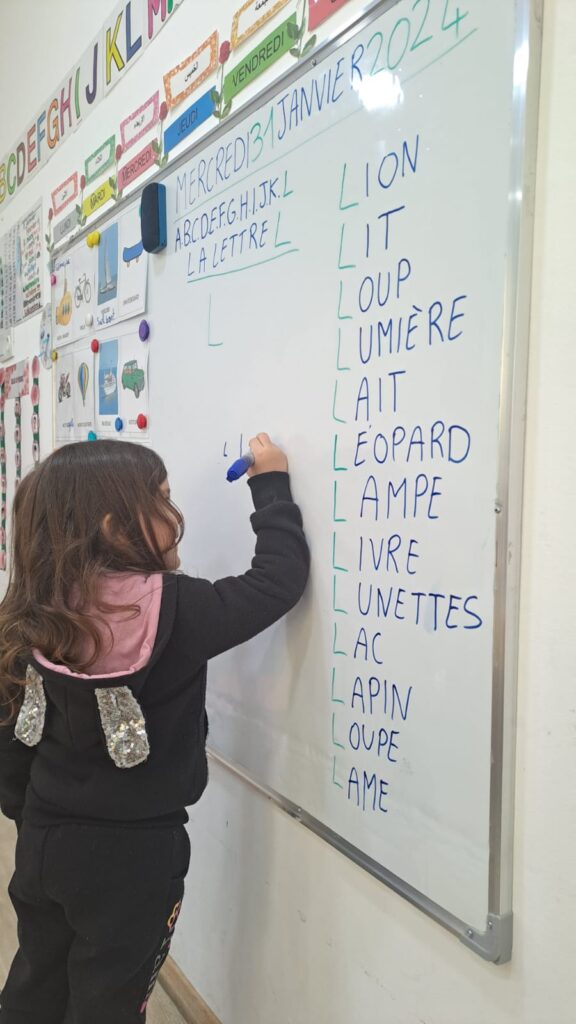 ABCDEFGHIJKLM
VENDREDI
JEUDI
MERCREDI
MARDI
LUNDI
MERCREDI 31 JANVIER 2024
A.B.C.D.E.F.G.H.I.J.K.L
LA LETTRE L
L
LION
LIT
LOUP
LUMIÈRE
LAIT
LÉOPARD
LAMPE
LIVRE
LUNETTES
LAC
LAPIN
LOUPE
LAME